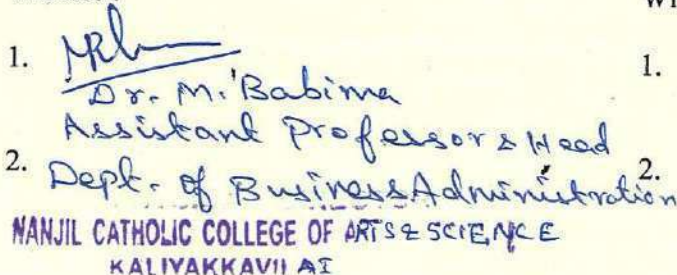 1.
Dr. M. Babima
Assistant Professor & Head
2. Dept. of Business Administration
NANJIL CATHOLIC COLLEGE OF ARTS & SCIENCE
KALIYAKKAVILAI
1.
2.